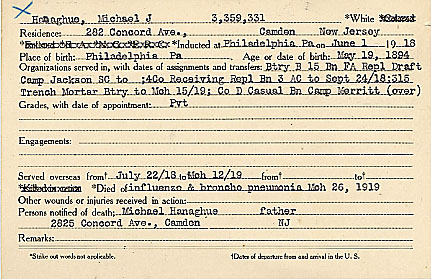 Hanaghue, Michael J 3,359,331 *White *Colored
Residence: 282 Concord Ave., Camden New Jersey
*Enlisted R.A. N.G. E.R.C. *Inducted at Philadelphia Pa on June 1 19 18
Place of birth: Philadelphia Pa Age or date of birth: May 19, 1894
Organizations served in, with dates of assignments and transfers: Btry B 15 Bn FA Repl Draft
Camp Jackson SC to ;4Co Receiving Repl Bn 3 AC to Sept 24/18:315
Trench Mortar Btry to Mch 15/19; Co D Casual Bn Camp Merritt (over)
Grades, with date of appointment: Pvt
Engagements:
Served overseas from† July 22/18 to† Mch 12/19 from† to†
*Killed in action *Died of influenzo & broncho pneumonia Mch 26, 1919
Other wounds or injuries received in action:
Persons notified of death: Michael Hanaghue father
2825 Concord Ave., Camden NJ
Remarks:
*Strike out words not applicable. †Dates of departure from and arrival in the U. S.